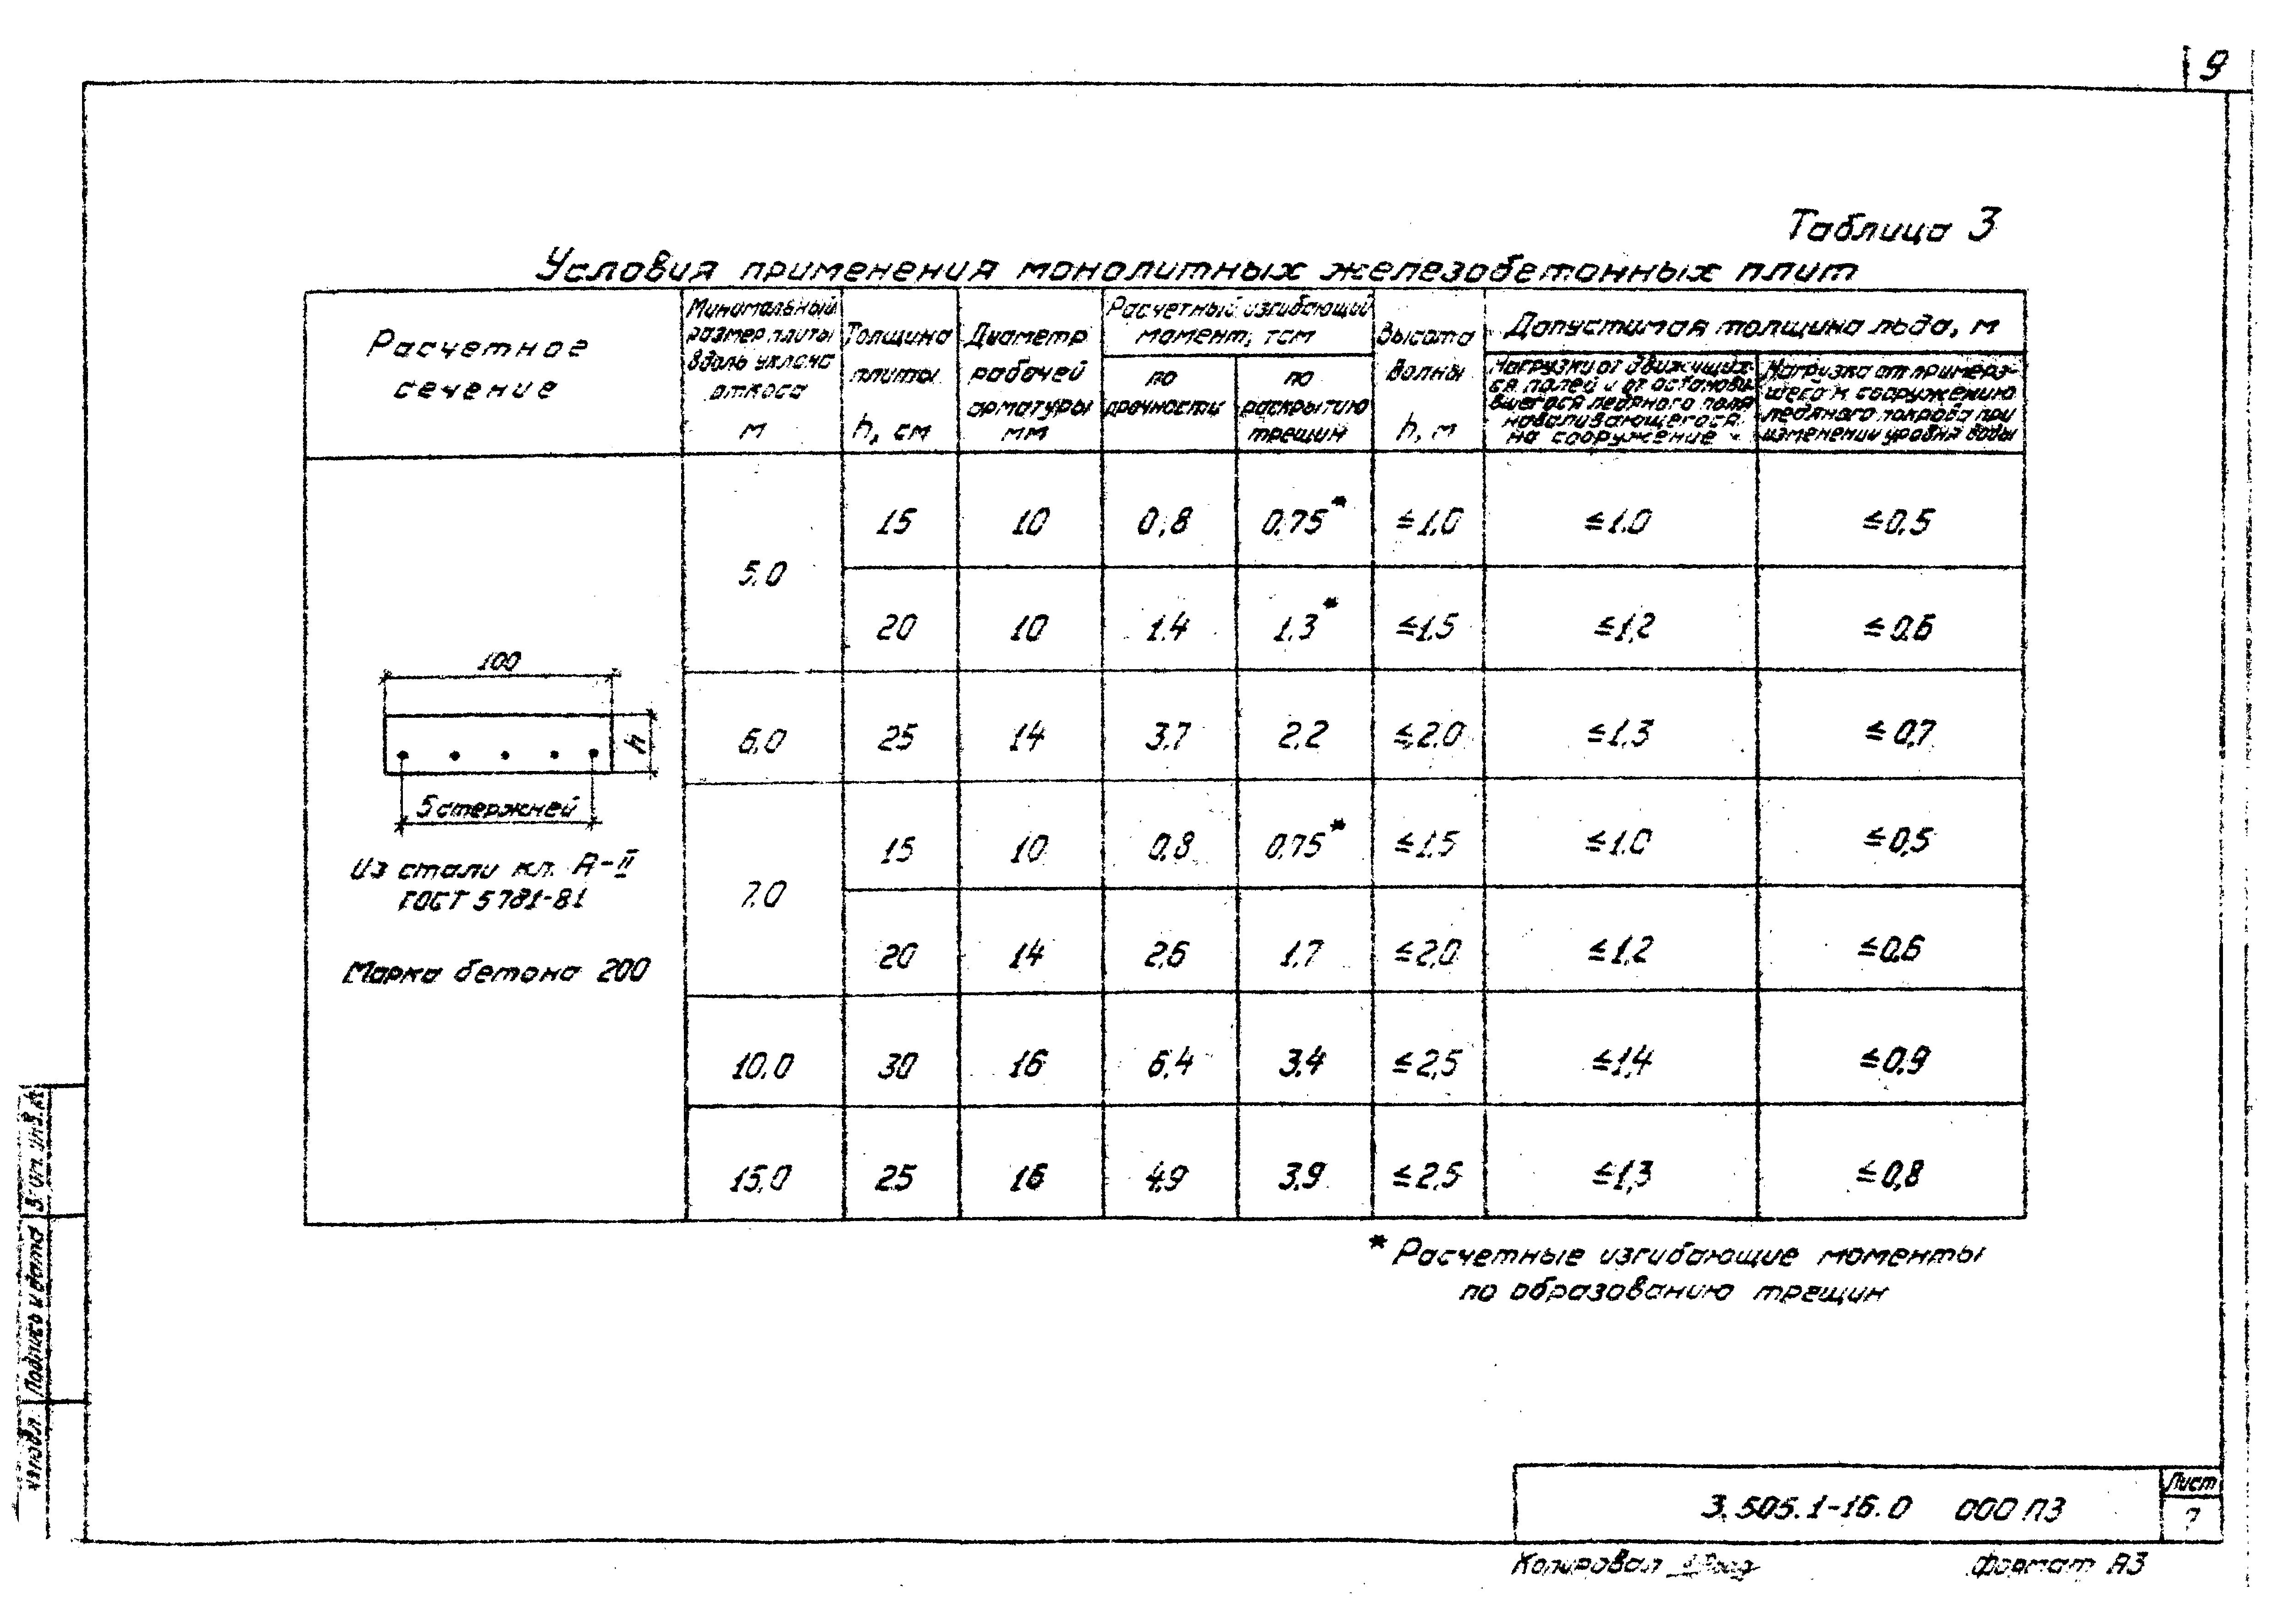 9
Таблица 3
Условия применения монолитных железобетонных плит
Расчетное
сечение
Минимальный
размер плиты
вдоль уклона
откоса
м
Толщина
плиты
h, см
Диаметр
рабочей
арматуры
мм
Расчетный изгибающий
момент, тсм
по
прочности
по
раскрытию
трещин
Высота
волны
h, м
Допустимая толщина льда, м
Нагрузки от движущих-
ся полей и от останови-
вшегося ледяного поля
наваливающегося
на сооружение
Нагрузка от примерз-
шего к сооружению
ледяного покрова при
изменении уровня воды
100
h
5 стержней
Из стали кл. А-II
ГОСТ 5781-81
Марка бетона 200
5,0 15 10 0,8 0,75* ≤1,0 ≤1,0 ≤0,5
20 10 1,4 1,3* ≤1,5 ≤1,2 ≤0,6
6,0 25 14 3,7 2,2 ≤2,0 ≤1,3 ≤0,7
7,0 15 10 0,8 0,75* ≤1,5 ≤1,0 ≤0,5
20 14 2,6 1,7 ≤2,0 ≤1,2 ≤0,6
10,0 30 16 6,4 3,4 ≤2,5 ≤1,4 ≤0,9
15,0 25 16 4,9 3,9 ≤2,5 ≤1,3 ≤0,8
* Расчетные изгибающие моменты
по образованию трещин
Подпись и дата
3.505.1-16.0 000 ПЗ
Лист
7
Копировал
Формат А3